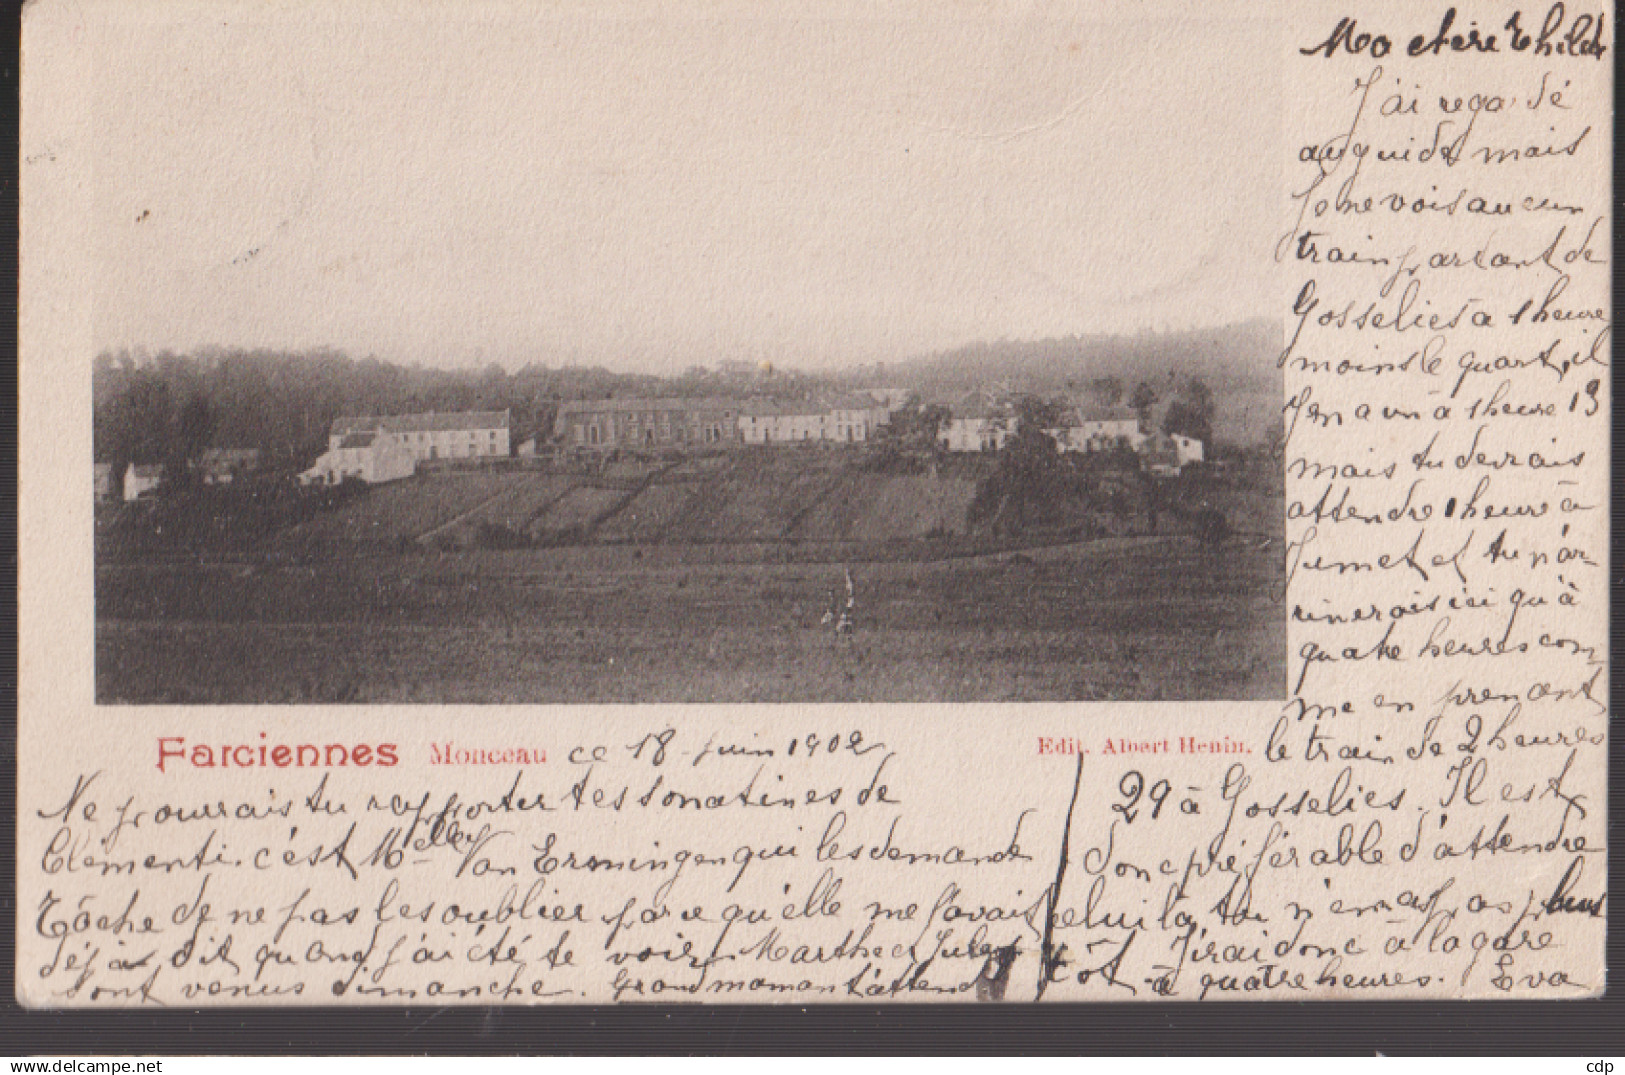 Ma chère Thilde
J'ai regardé
au guide mais
je ne vois aucun
train partant de
Gosselies à 1 heure
moins le quart, il
y en a un à 1 heure 13
mais tu devrais
attendre 1 heure à
Jumet et tu n'ar-
riverais ici qu'à
quatre heures com-
me en prenant
le train de 2 heures
29 à Gosselies. Il est
donc préférable d'attendre
celui là, tu n'en as pas plus
tôt. J'irai donc à la gare
à quatre heures. Eva
Farciennes Monceau ce 18 juin 1902
Edit. Albert Henin.
Ne pourrais tu rapporter tes sonatines de
Clementi. c'est Melle Van Ermingen qui les demande
Tâche de ne pas les oublier parce qu'elle me l'avait
déjà dit quand j'ai été te voir. Marthe et Jules
sont venus dimanche. Grand maman t'attend.
cdp